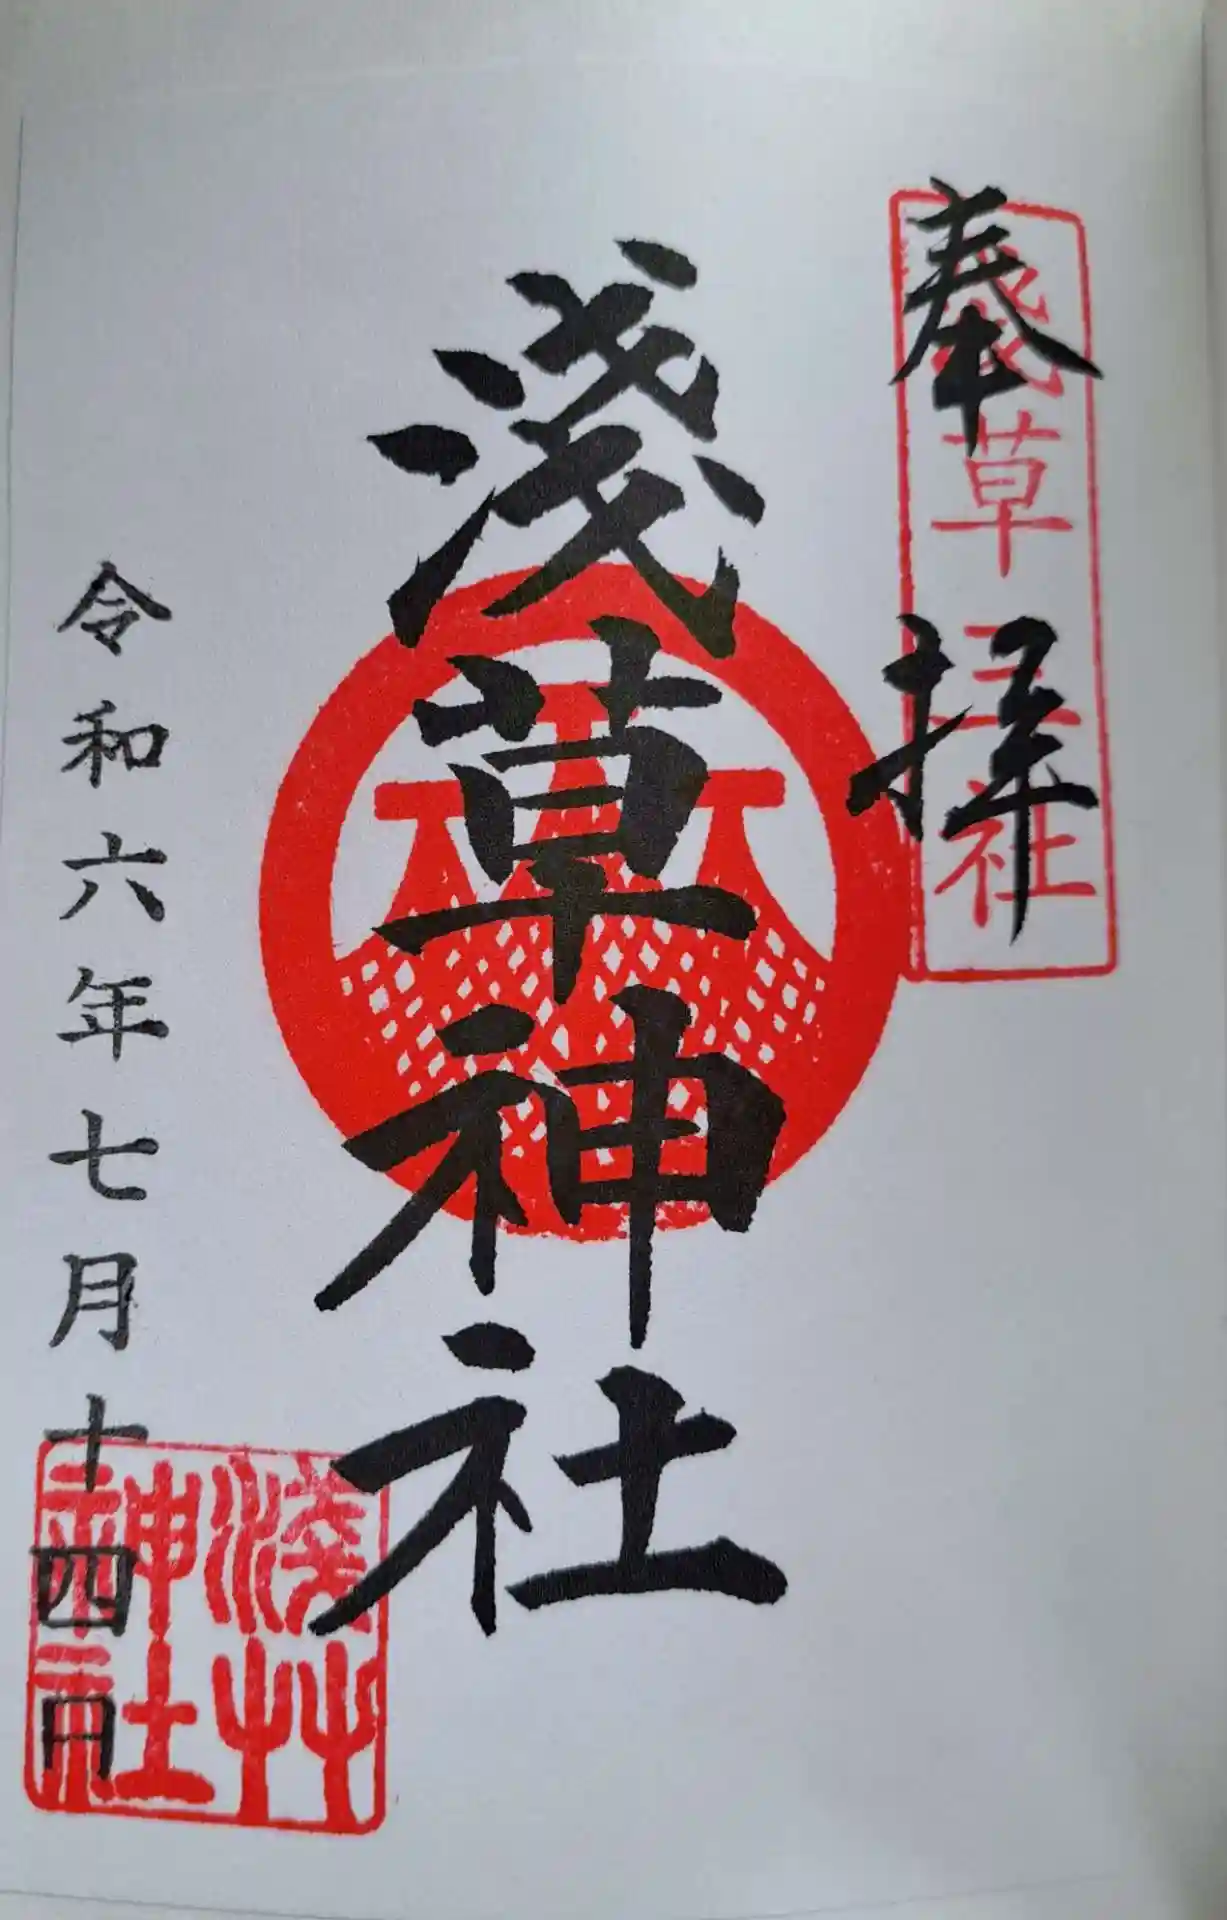 奉拝
浅草三社
淺草神社
令和六年七月十四日
淺草神社